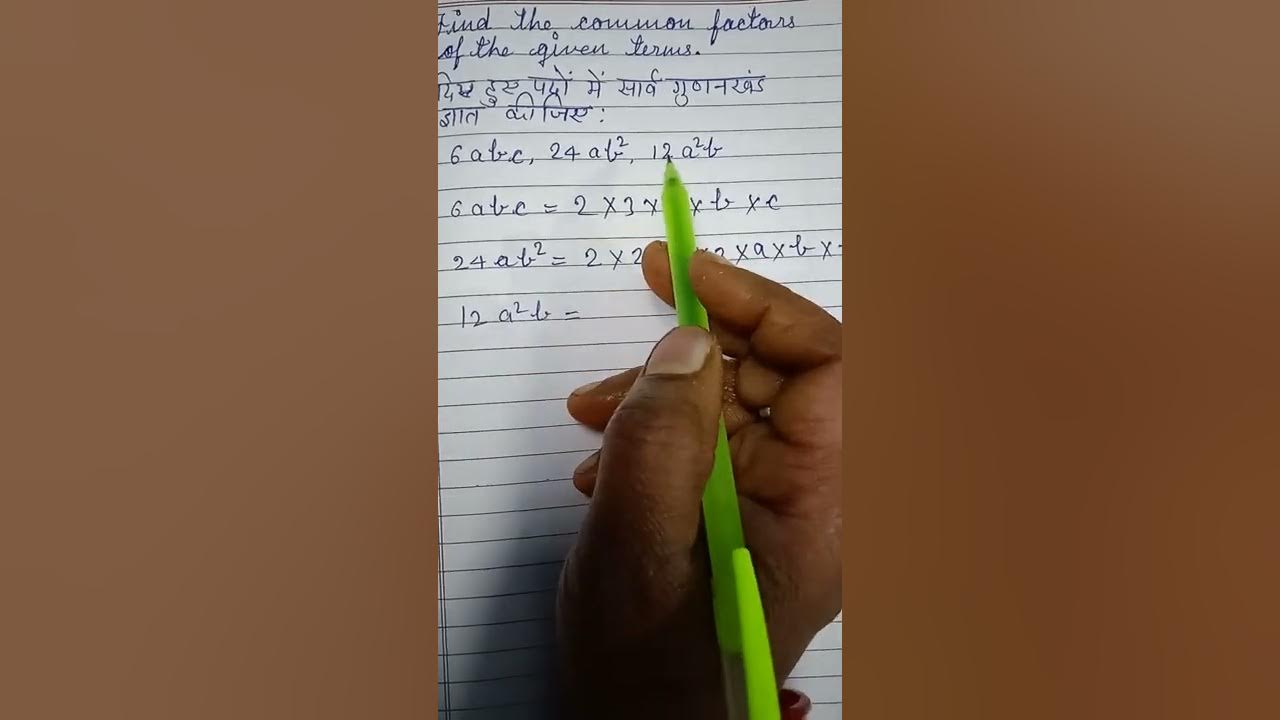 Find the common factors
of the given terms.
दिए हुए पदों में सार्व गुणनखंड
ज्ञात कीजिए:
6abc, 24ab², 12a²b
6abc = 2×3× ×b×c
24ab² = 2×2 ×a×b×
12a²b =